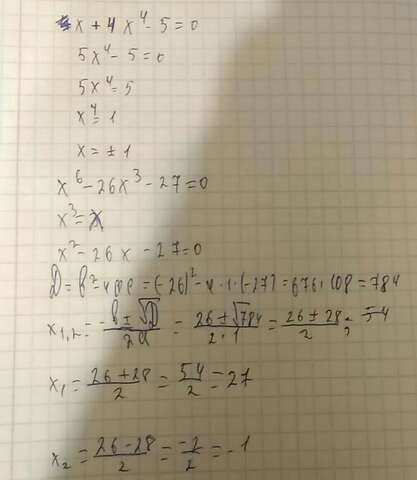 x + 4x⁴ - 5 = 0
5x⁴ - 5 = 0
5x⁴ = 5
x⁴ = 1
x = ± 1
x⁶ - 26x³ - 27 = 0
x³ = x
x² - 26x - 27 = 0
D = b² - 4ac = (-26)² - 4·1·(-27) = 676 + 108 = 784
x₁,₂ = (-b ± √D)/(2a) = (26 ± √784)/(2·1) = (26 ± 28)/2 =
x₁ = (26 + 28)/2 = 54/2 = 27
x₂ = (26 - 28)/2 = -2/2 = -1